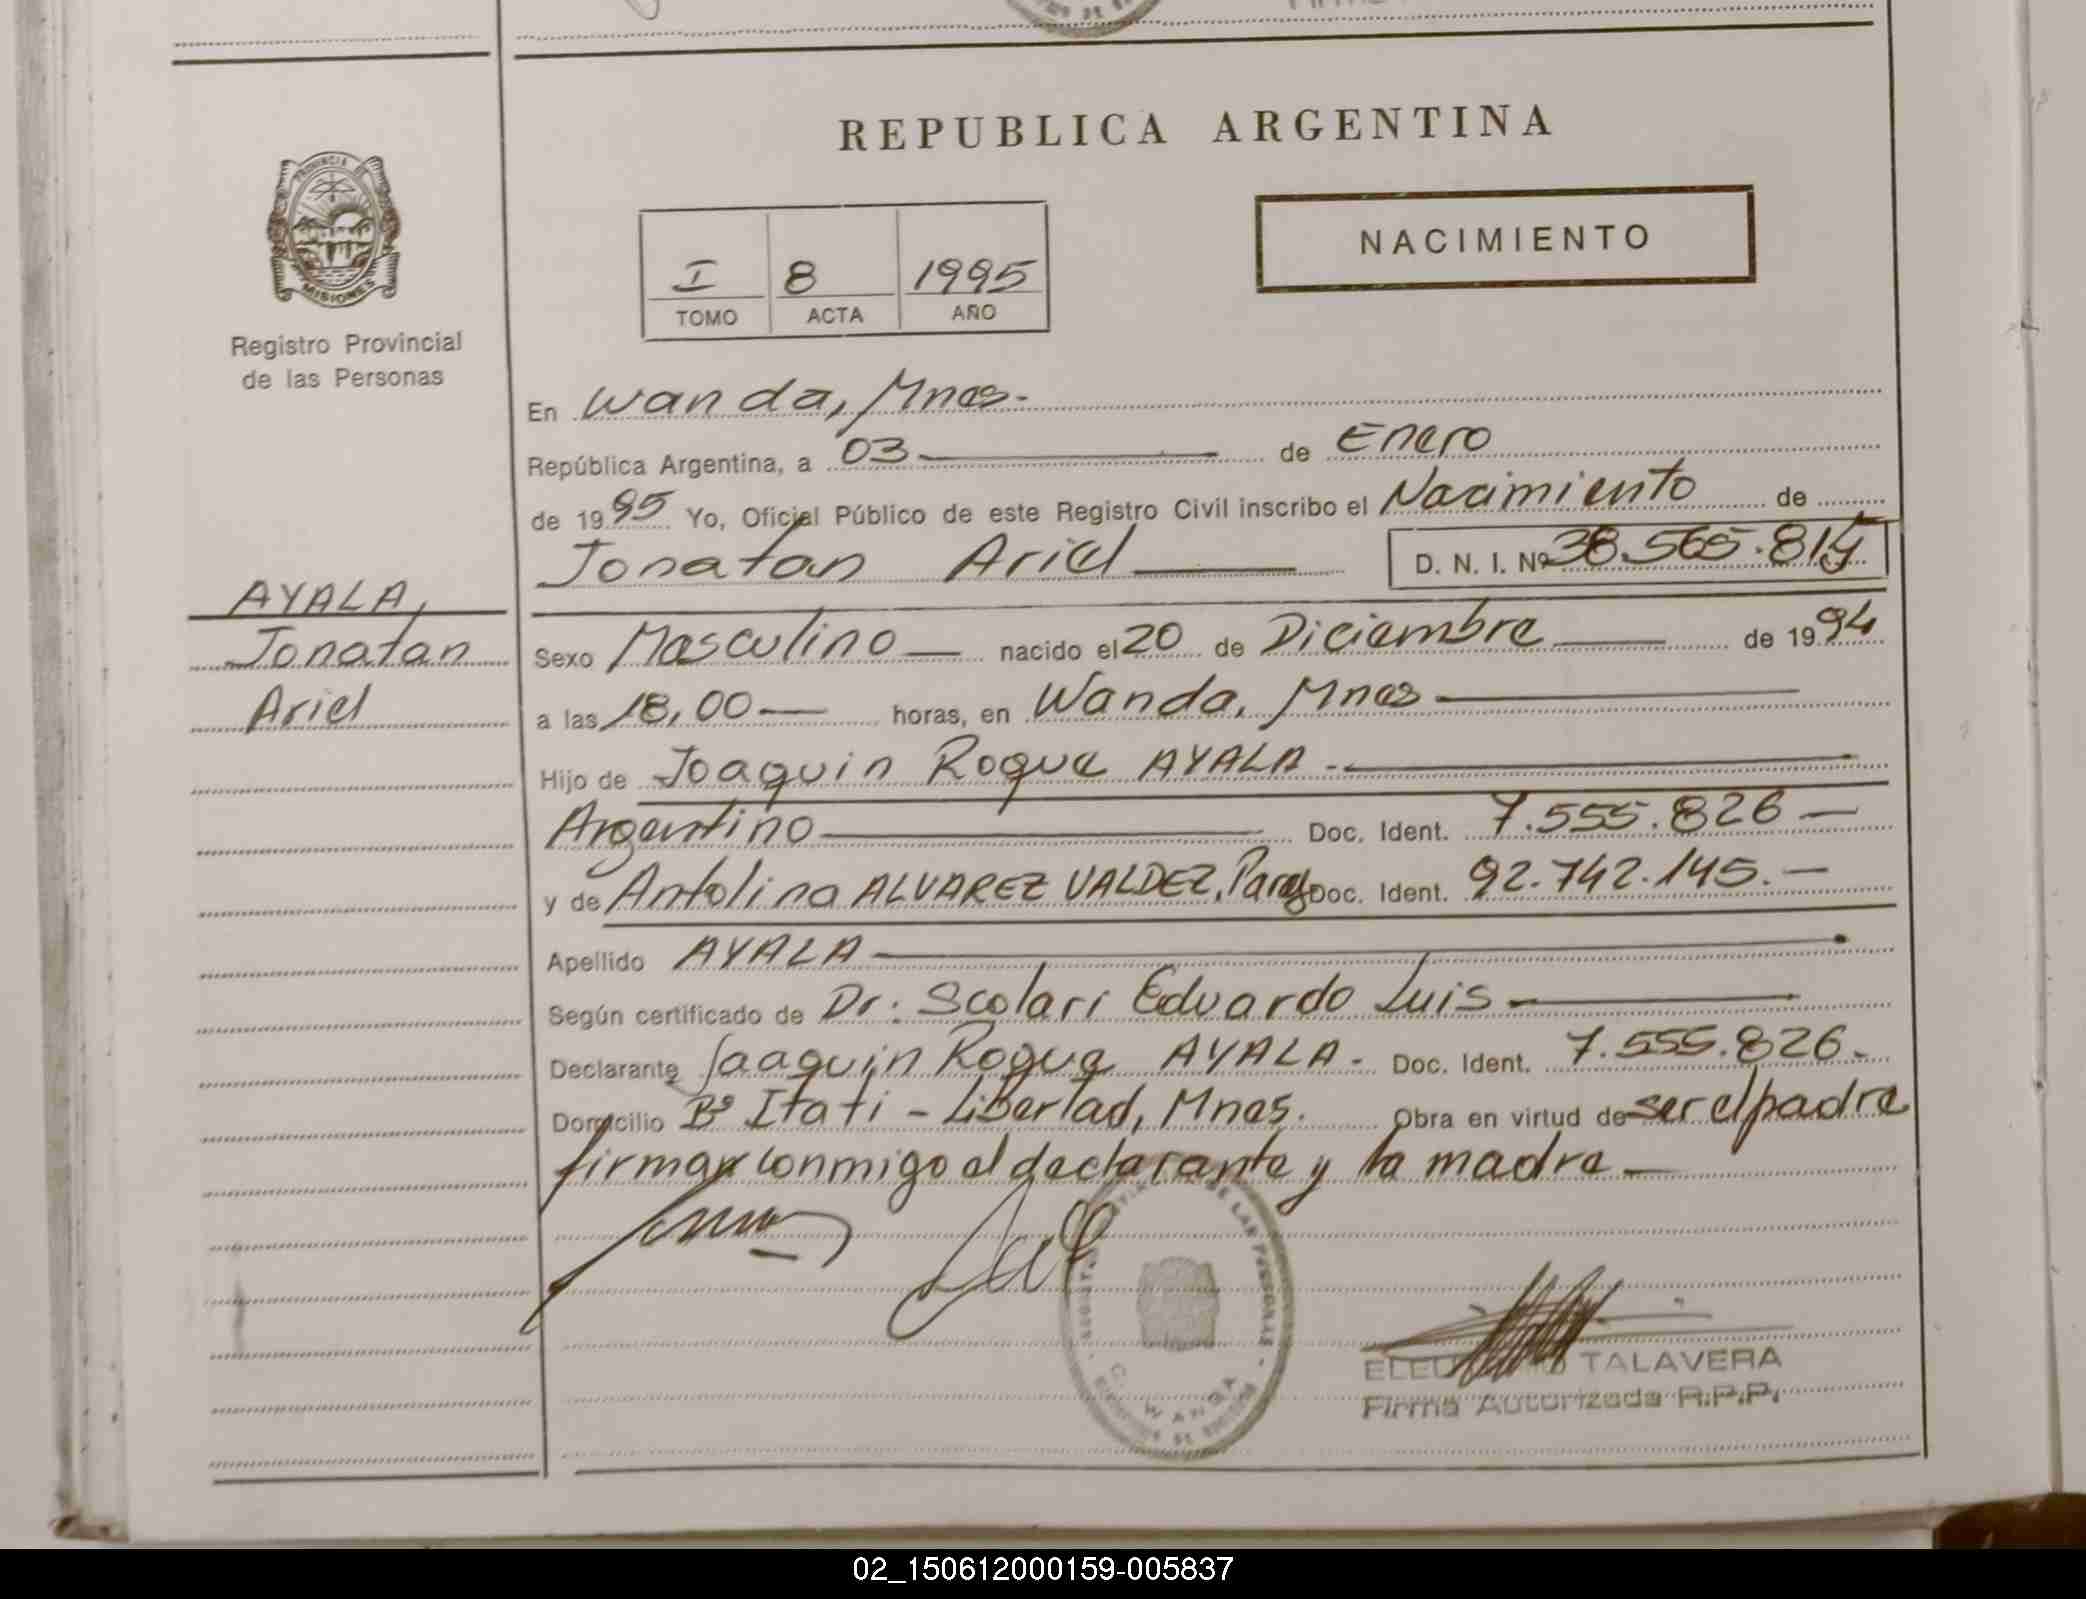 REPUBLICA ARGENTINA
PROVINCIA DE
MISIONES
Registro Provincial
de las Personas
I 8 1995
TOMO ACTA AÑO
NACIMIENTO
En Wanda, Mnes.
República Argentina, a 03 de Enero
de 1995 Yo, Oficial Público de este Registro Civil inscribo el Nacimiento de
Jonatan Ariel D. N. I. Nº 38.565.814
AYALA,
Jonatan
Ariel
Sexo Masculino nacido el 20 de Diciembre de 1994
a las 18,00 horas, en Wanda, Mnes
Hijo de Joaquin Roque AYALA.
Argentino Doc. Ident. 7.555.826
y de Antolina ALVAREZ VALDEZ, Parag Doc. Ident. 92.742.145.
Apellido AYALA
Según certificado de Dr: Scolari Eduardo Luis
Declarante Joaquin Roque AYALA. Doc. Ident. 7.555.826.
Domicilio Bº Itati - Libertad, Mnes. Obra en virtud de ser el padre
firman conmigo el declarante y la madre
DE LAS PERSONAS
WANDA
TALAVERA
Firma Autorizada R.P.P.
02_150612000159-005837